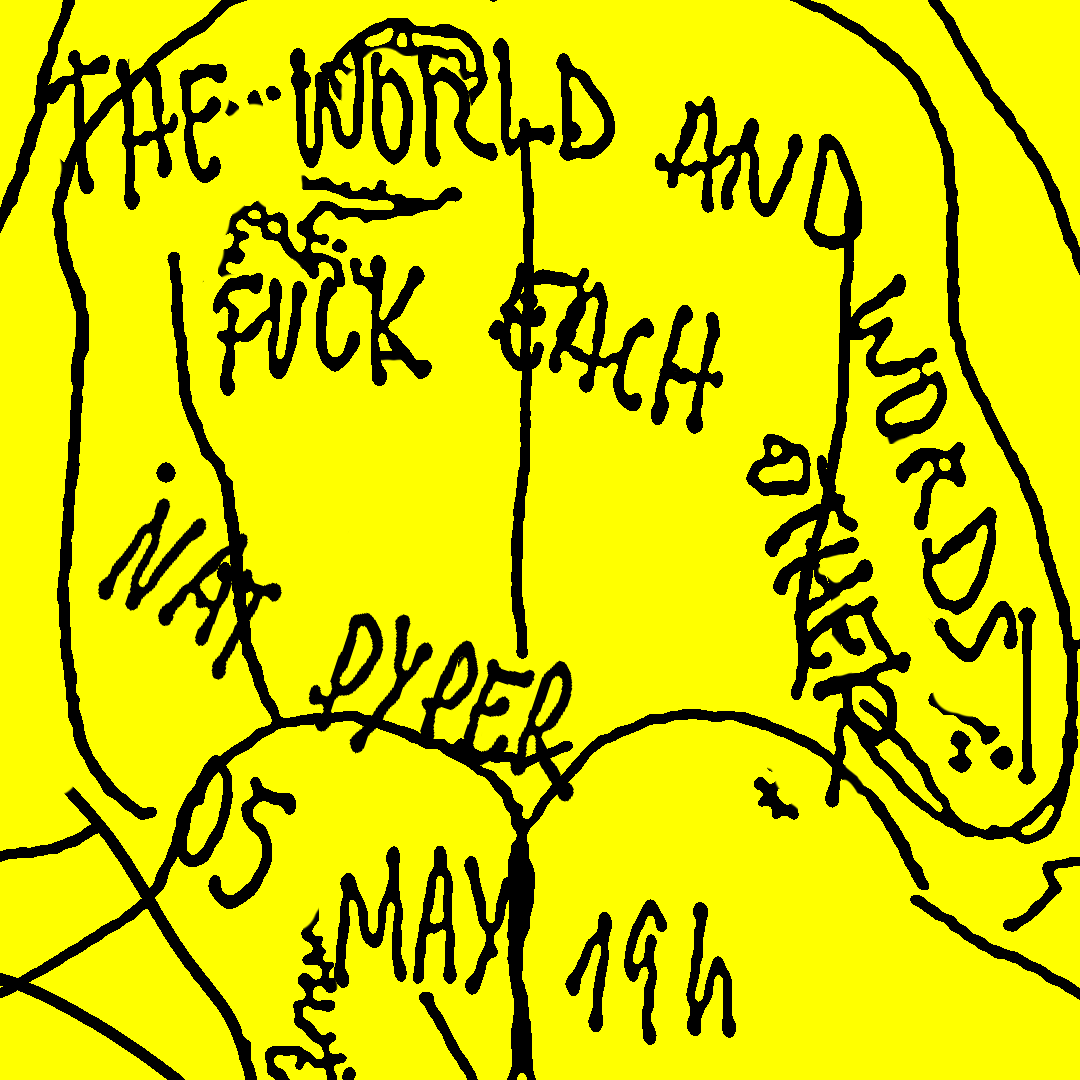 THE WORLD AND WORDS
FUCK EACH OTHER
NAT PYPER
05 MAY 19h